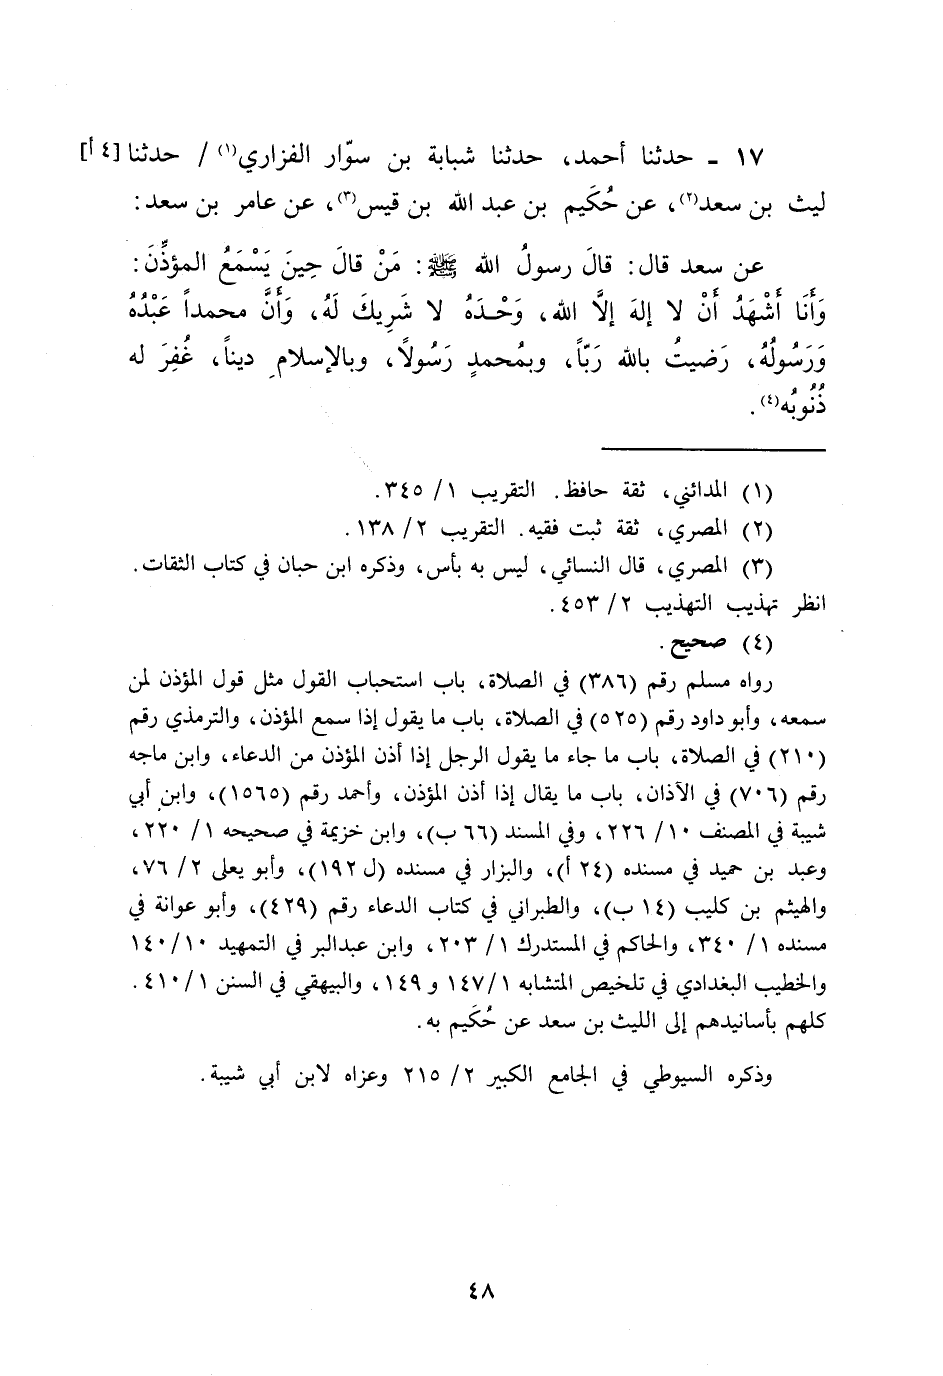 ١٧ - حدثنا أحمد، حدثنا شبابة بن سوّار الفزاري(١) / حدثنا [٤ أ]
ليث بن سعد(٢)، عن حُكَيم بن عبد الله بن قيس(٣)، عن عامر بن سعد:
عن سعد قال: قالَ رسولُ الله ﷺ: مَنْ قالَ حِينَ يَسْمَعُ المؤذِّنَ:
وَأَنَا أَشْهَدُ أَنْ لا إلهَ إلَّا الله، وَحْدَهُ لا شَرِيكَ لَهُ، وَأَنَّ محمداً عَبْدُهُ
وَرَسُولُهُ، رَضيتُ بالله رَبّاً، وبمُحمدٍ رَسُولًا، وبالإسلامِ ديناً، غُفِرَ له
ذُنُوبُه(٤).
(١) المدائني، ثقة حافظ. التقريب ١/ ٣٤٥.
(٢) المصري، ثقة ثبت فقيه. التقريب ٢/ ١٣٨.
(٣) المصري، قال النسائي، ليس به بأس، وذكره ابن حبان في كتاب الثقات.
انظر تهذيب التهذيب ٢/ ٤٥٣.
(٤) صحيح.
رواه مسلم رقم (٣٨٦) في الصلاة، باب استحباب القول مثل قول المؤذن لمن
سمعه، وأبو داود رقم (٥٢٥) في الصلاة، باب ما يقول إذا سمع المؤذن، والترمذي رقم
(٢١٠) في الصلاة، باب ما جاء ما يقول الرجل إذا أذن المؤذن من الدعاء، وابن ماجه
رقم (٧٠٦) في الآذان، باب ما يقال إذا أذن المؤذن، وأحمد رقم (١٥٦٥)، وابن أبي
شيبة في المصنف ١٠/ ٢٢٦، وفي المسند (٦٦ ب)، وابن خزيمة في صحيحه ١/ ٢٢٠،
وعبد بن حميد في مسنده (٢٤ أ)، والبزار في مسنده (ل ١٩٢)، وأبو يعلى ٢/ ٧٦،
والهيثم بن كليب (١٤ ب)، والطبراني في كتاب الدعاء رقم (٤٢٩)، وأبو عوانة في
مسنده ١/ ٣٤٠، والحاكم في المستدرك ١/ ٢٠٣، وابن عبدالبر في التمهيد ١٠/ ١٤٠
والخطيب البغدادي في تلخيص المتشابه ١/ ١٤٧ و ١٤٩، والبيهقي في السنن ١/ ٤١٠.
كلهم بأسانيدهم إلى الليث بن سعد عن حُكَيم به.
وذكره السيوطي في الجامع الكبير ٢/ ٢١٥ وعزاه لابن أبي شيبة.
٤٨